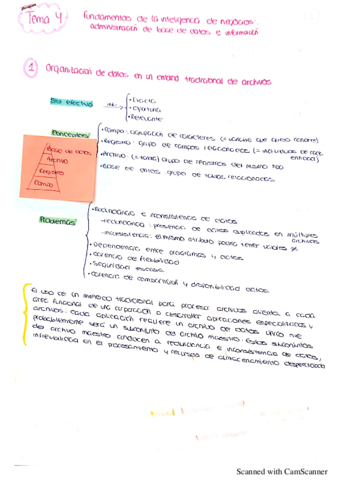 Tema 4
Fundamentos de la inteligencia de negocios:
administración de base de datos e información
1 Organización de datos en un entorno tradicional de archivos
SIs efectivo
Exacta
Oportuna
Relevante
Conceptos
• Campo: agrupación de caracteres (= variable que quiero conocer)
• Registro: grupo de campos relacionados (= individuales de cada entidad)
• Archivo (= tabla) grupo de registros del mismo tipo
• Base de datos: grupo de tablas relacionadas
Base de datos
Archivo
Registro
Campo
Problemas
• Redundancia e inconsistencia de datos
- redundancia: presencia de datos duplicados en múltiples archivos
- inconsistencia: el mismo atributo puede tener valores ≠
• Dependencia entre programas y datos
• carencia de flexibilidad
• Seguridad escasa
• carencia de compartición y disponibilidad datos
El uso de un método tradicional para procesar archivos alienta a cada
área funcional de una corporación a desarrollar aplicaciones especializadas y
archivos. Cada aplicación requiere un archivo de datos único que
probablemente será un subconjunto del archivo maestro. Estos subconjuntos
del archivo maestro conducen a redundancia e inconsistencia de datos,
inflexibilidad en el procesamiento y recursos de almacenamiento desperdiciados
Scanned with CamScanner